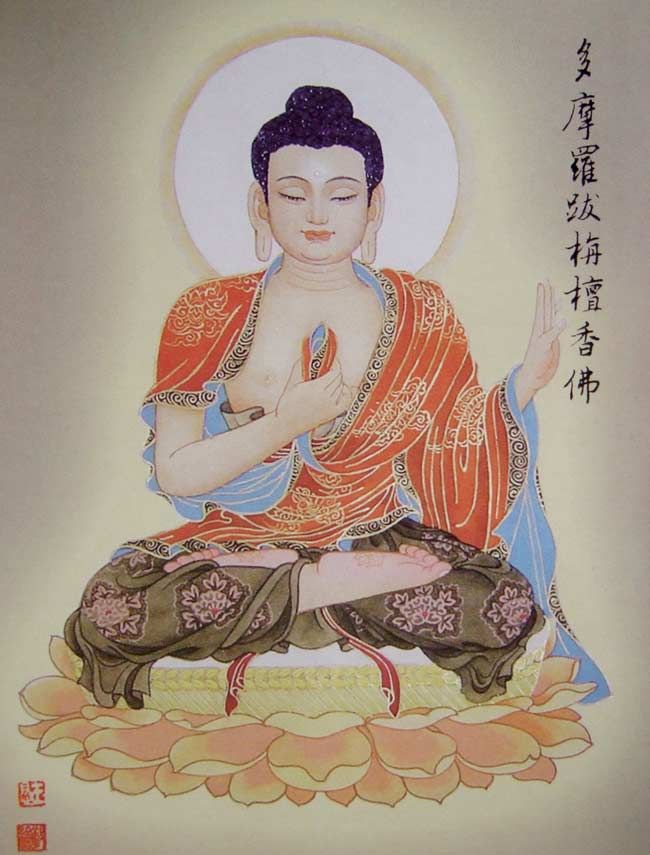 多摩羅跋栴檀香佛